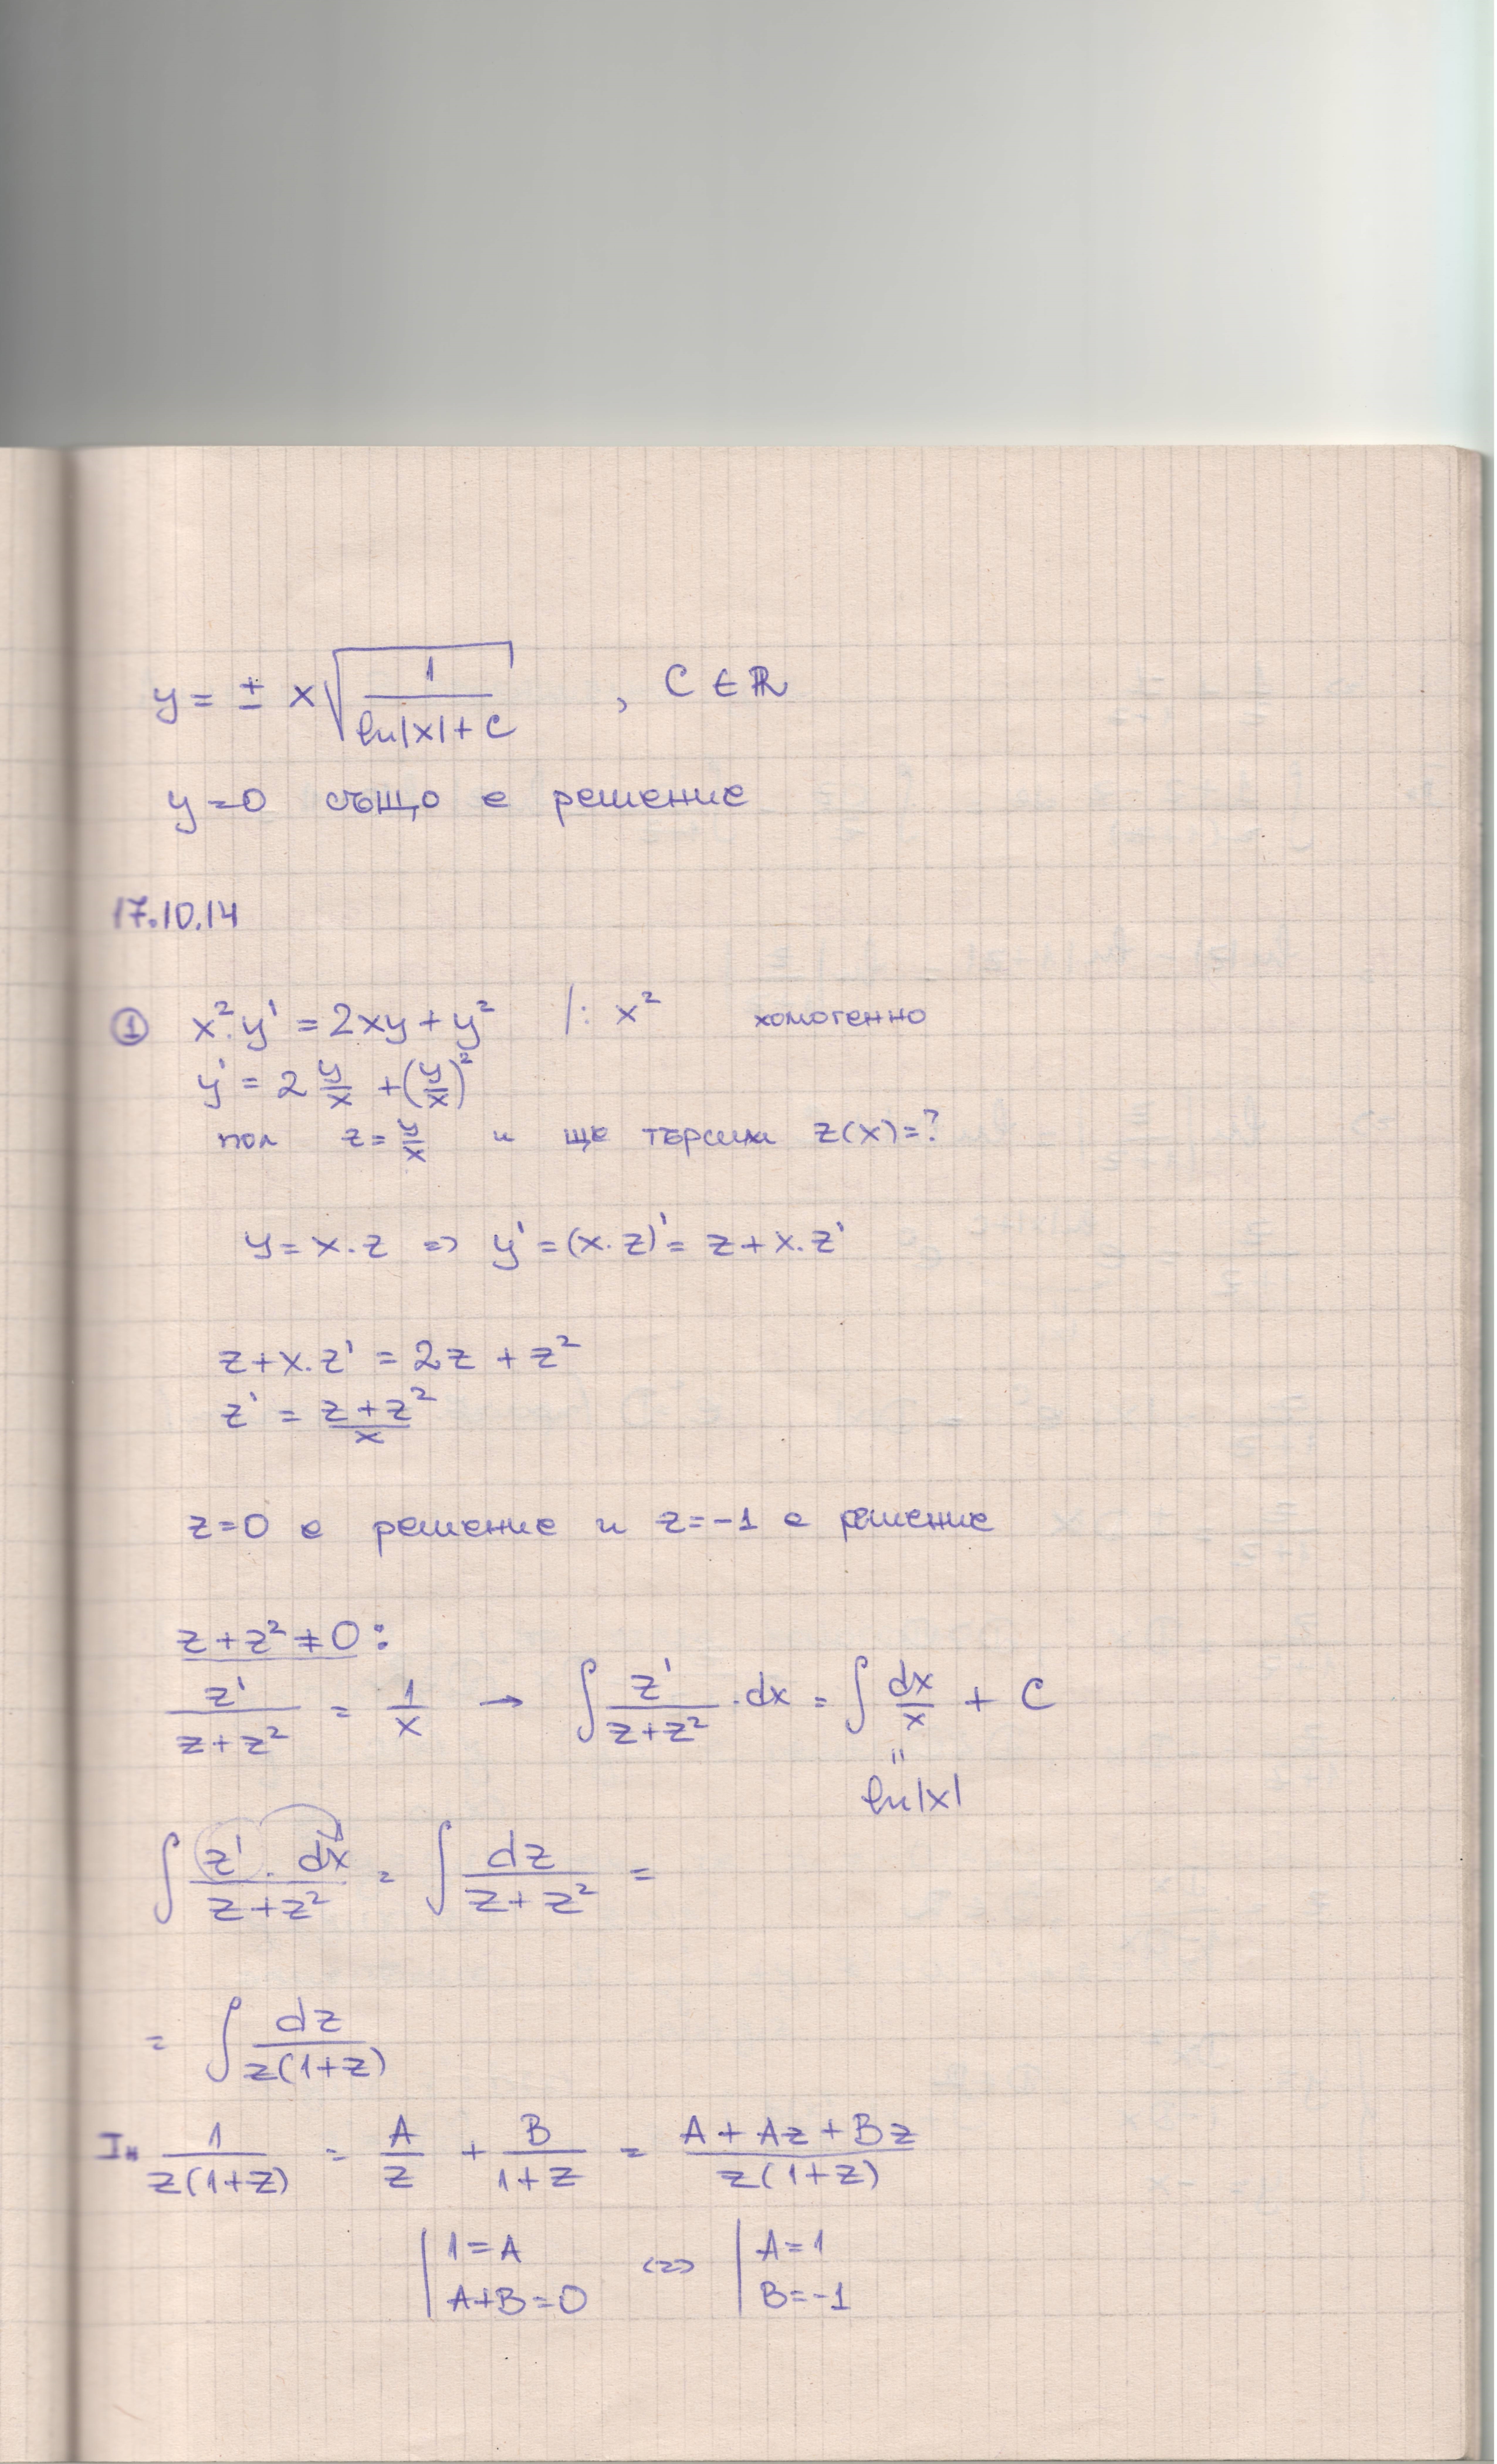 y = ± x √(1/(ln|x| + C)) , C ∈ ℝ
y = 0 също е решение
17.10.14
① x².y' = 2xy + y² /: x² хомогенно
y' = 2 y/x + (y/x)²
пол z = y/x и ще търсим z(x) = ?
y = x.z => y' = (x.z)' = z + x.z'
z + x.z' = 2z + z²
z' = (z + z²)/x
z = 0 е решение и z = -1 е решение
z + z² ≠ 0 :
z'/(z + z²) = 1/x → ∫ z'/(z + z²) .dx = ∫ dx/x + C
"
ln|x|
∫ (z' . dx)/(z + z²) = ∫ dz/(z + z²) =
= ∫ dz/(z(1+z))
1/(z(1+z)) = A/z + B/(1+z) = (A + Az + Bz)/(z(1+z))
| 1 = A <=> | A = 1
| A+B = 0 | B = -1